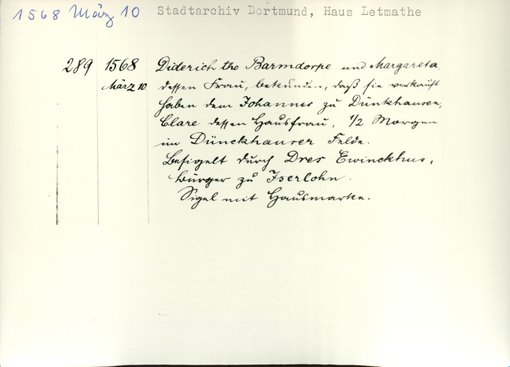 1568 März 10 Stadtarchiv Dortmund, Haus Letmathe
289 1568 Diderich tho Barmdorpe und Margareta
März 10 dessen Frau, bekunden, daß sie verkauft
haben dem Johannes zu Dünkhausen,
Clare dessen Hausfrau, 1/2 Morgen
im Dünckhauser Felde.
Besigelt durch Dres Ewinckhus,
Bürger zu Iserlohn.
Sigel mit Hausmarke.